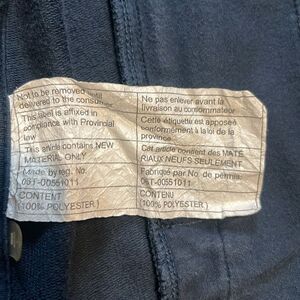 Not to be removed until
delivered to the consumer
This label is affixed in
compliance with Provincial
law
This article contains NEW
MATERIAL ONLY
Made by reg. No.
05T-00551011
CONTENT
(100% POLYESTER)
Ne pas enlever avant la
livraison au conformmateur
Cette étiquette est apposée
conformément à la loi de la
province
Cet article contient des MATÉ
RIAUX NEUFS SEULEMENT
Fabriqué par No. de permis:
05T-00551011
CONTENU
(100% POLYESTER)